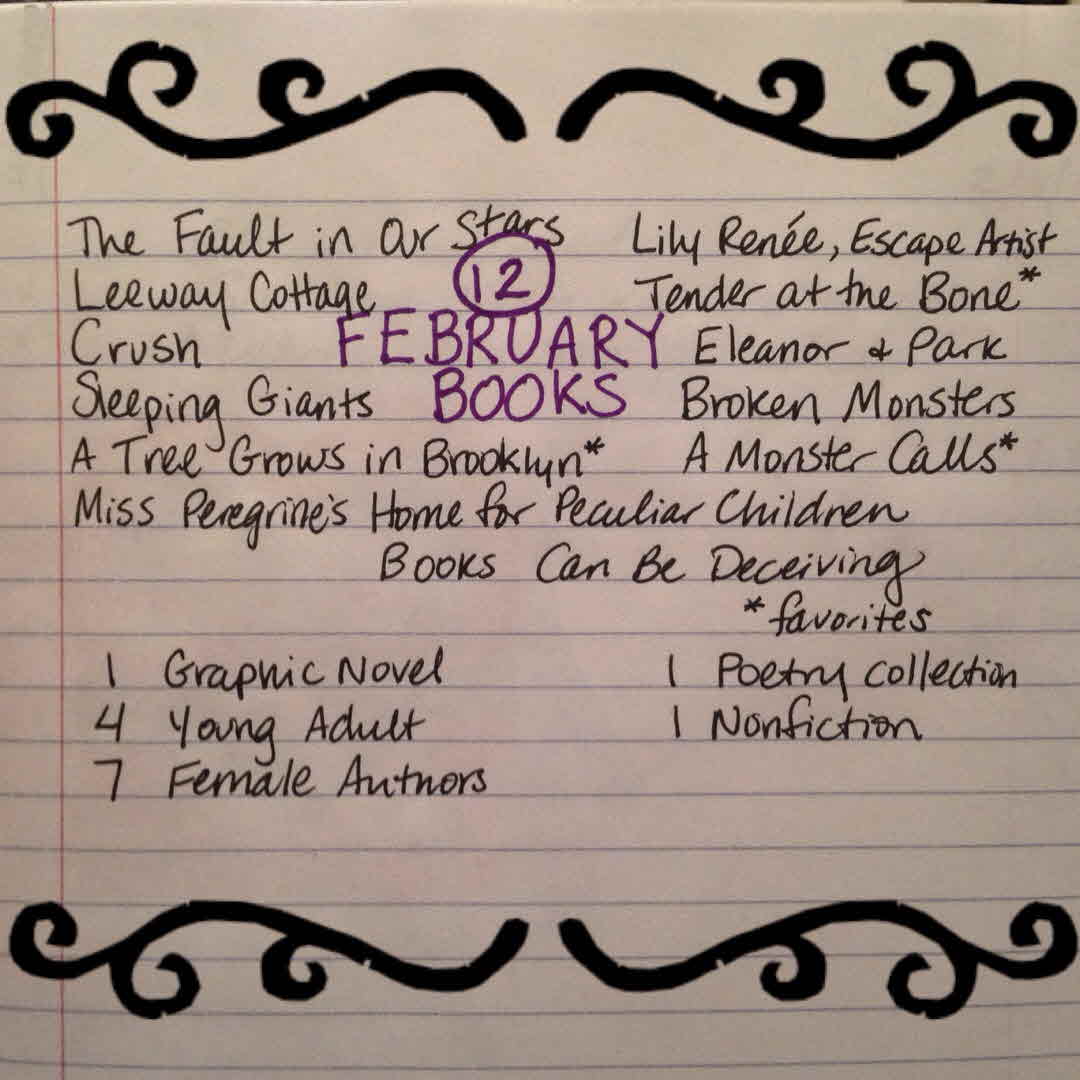 The Fault in Our Stars Lily Renée, Escape Artist
Leeway Cottage 12 Tender at the Bone*
Crush FEBRUARY Eleanor & Park
Sleeping Giants BOOKS Broken Monsters
A Tree Grows in Brooklyn* A Monster Calls*
Miss Peregrine's Home for Peculiar Children
Books Can Be Deceiving
*favorites
1 Graphic Novel 1 Poetry collection
4 Young Adult 1 Nonfiction
7 Female Authors